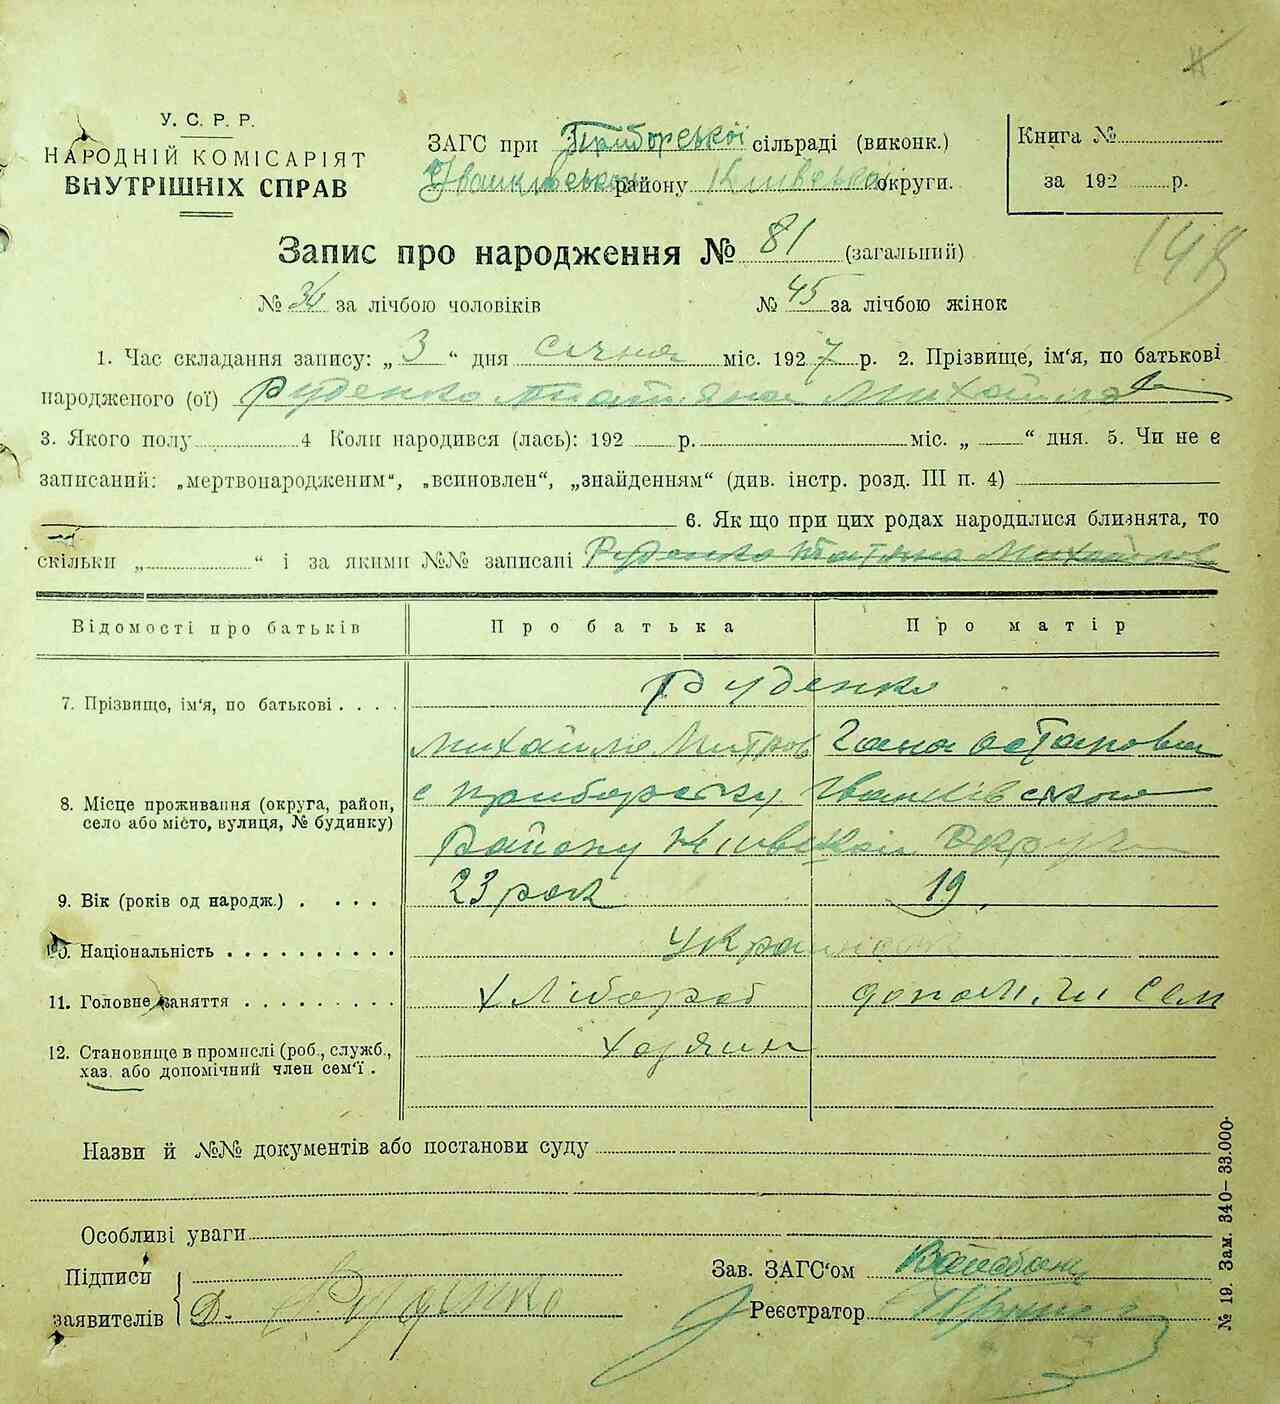 У. С. Р. Р.
НАРОДНІЙ КОМІСАРІЯТ
ВНУТРІШНІХ СПРАВ
ЗАГС при Приборської сільраді (виконк.)
Іванківської району Київської округи.
Книга №
за 192 р.
148
Запис про народження № 81 (загальний)
№ 36 за лічбою чоловіків № 45 за лічбою жінок
1. Час складання запису: „ 3 “ дня січня міс. 1927 р. 2. Прізвище, ім‘я, по батькові
народженого (ої) Руденко Татяна Михайлов
3. Якого полу 4 Коли народився (лась): 192 р. міс. „ “ дня. 5. Чи не є
записаний: „мертвонародженим“, „всиновлен“, „знайденням“ (див. інстр. розд. III п. 4)
6. Як що при цих родах народилися близнята, то
скільки „ “ і за якими №№ записані Руденко Татяна Михайлов
Відомості про батьків Про батька Про матір
7. Прізвище, ім‘я, по батькові . . . . Руденко
Михайло Митров Гана Остаповна
8. Місце проживання (округа, район,
село або місто, вулиця, № будинку)
с Приборську Іванківського
Району Київської Округи
9. Вік (років од народж.) . . . . 23 рок 19
10. Національність . . . . . . . . . . Українськ
11. Головне заняття . . . . . . . . . Хлібороб допом. чл сем
12. Становище в промислі (роб., служб.,
хаз. або допомічний член сем‘ї .
Хозяин
Назви й №№ документів або постанови суду
Особливі уваги
Підписи
заявителів
Руденко
Зав. ЗАГС‘ом
Реєстратор
№ 19. Зам. 340—33.000.